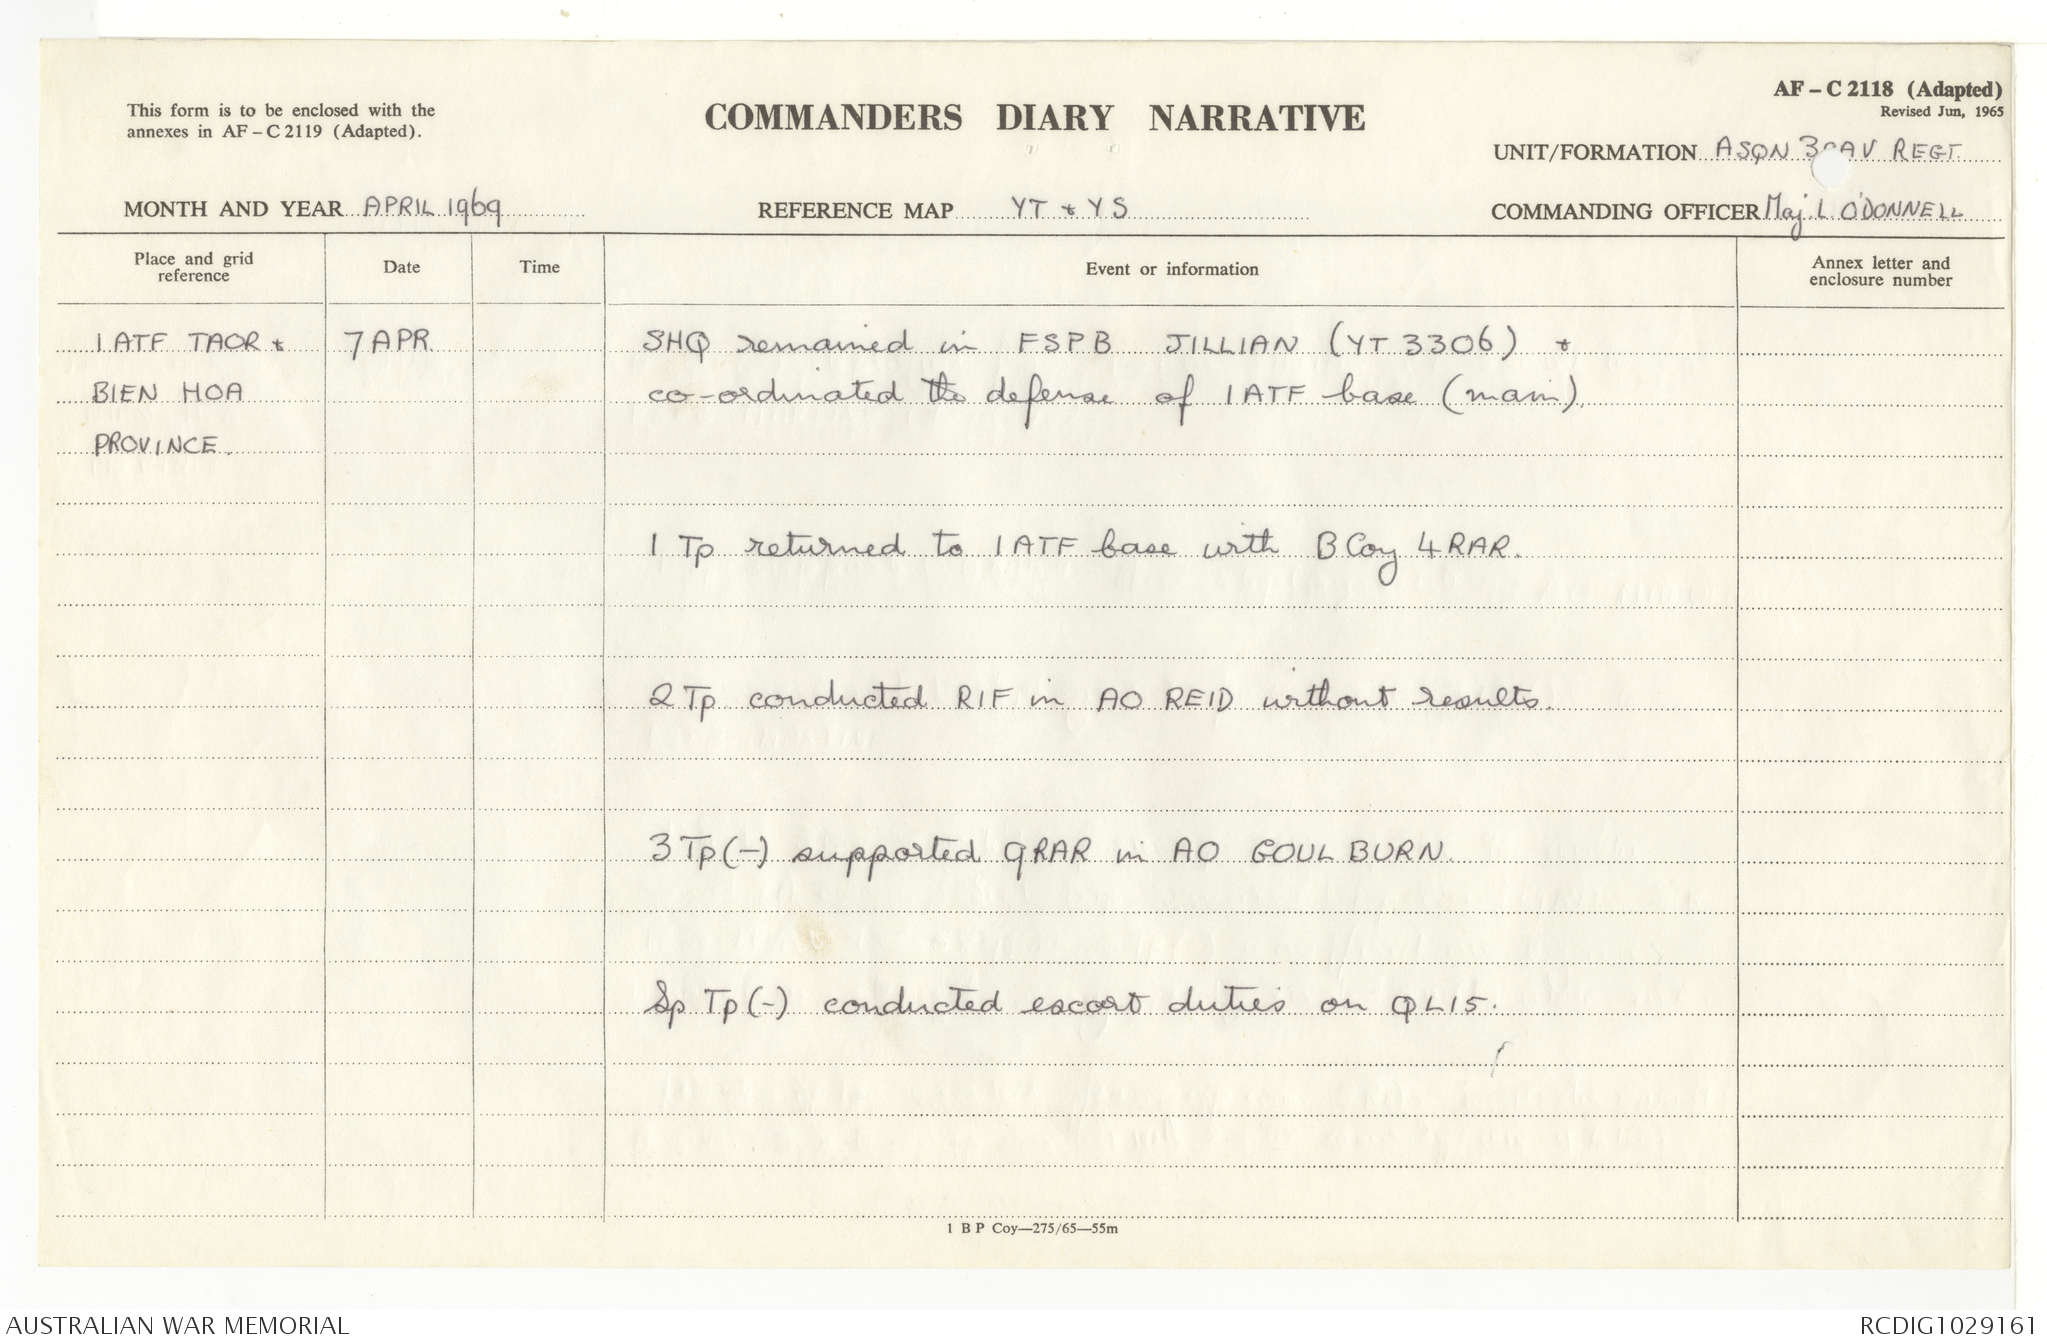 This form is to be enclosed with the
annexes in AF – C 2119 (Adapted).
COMMANDERS DIARY NARRATIVE
AF – C 2118 (Adapted)
Revised Jun, 1965
UNIT/FORMATION A SQN 3 CAV REGT
MONTH AND YEAR APRIL 1969
REFERENCE MAP YT & YS
COMMANDING OFFICER Maj L O'DONNELL
Place and grid
reference
Date
Time
Event or information
Annex letter and
enclosure number
1 ATF TAOR & 7 APR SHQ remained in FSPB JILLIAN (YT 3306) &
BIEN HOA co-ordinated the defense of 1 ATF base (main).
PROVINCE.
1 Tp returned to 1 ATF base with B Coy 4 RAR.
2 Tp conducted RIF in AO REID without results.
3 Tp (-) supported 9 RAR in AO GOULBURN.
Sp Tp (-) conducted escort duties on QL15.
1 B P Coy—275/65—55m
AUSTRALIAN WAR MEMORIAL
RCDIG1029161